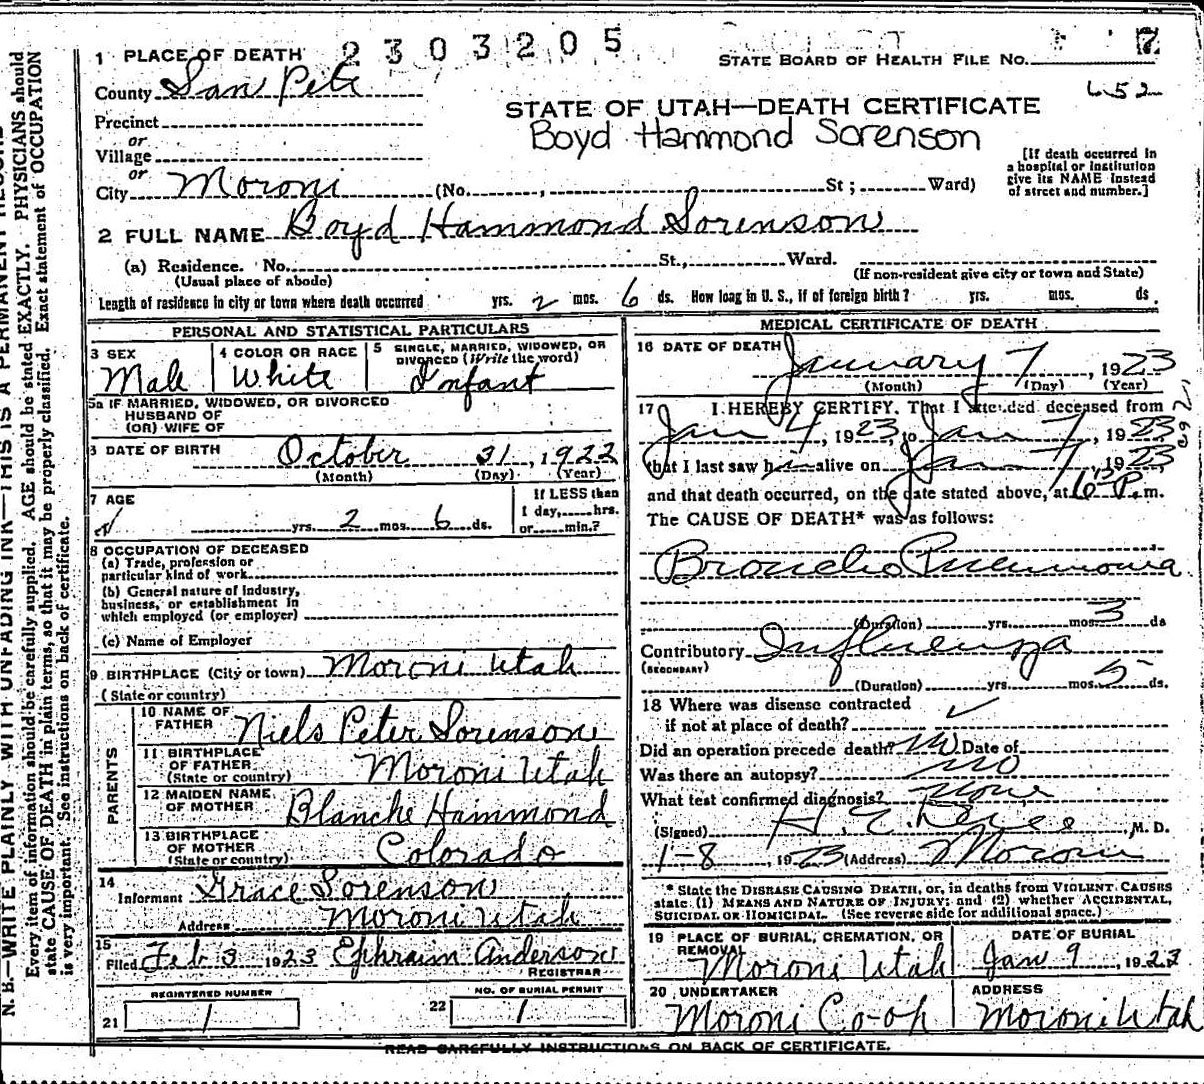 1 PLACE OF DEATH
2303205
STATE BOARD OF HEALTH FILE No. 7
County San Pete
652
STATE OF UTAH—DEATH CERTIFICATE
Precinct
Boyd Hammond Sorenson
or
Village
or
City Moroni (No. , St; Ward)
[If death occurred in
a hospital or institution
give its NAME instead
of street and number.]
2 FULL NAME Boyd Hammond Sorenson
(a) Residence. No. St., Ward.
(Usual place of abode) (If non-resident give city or town and State)
Length of residence in city or town where death occurred yrs. 2 mos. 6 ds. How long in U. S., if of foreign birth? yrs. mos. ds.
PERSONAL AND STATISTICAL PARTICULARS
3 SEX
Male
4 COLOR OR RACE
White
5 SINGLE, MARRIED, WIDOWED, OR
DIVORCED (Write the word)
Infant
5a IF MARRIED, WIDOWED, OR DIVORCED
HUSBAND OF
(OR) WIFE OF
DATE OF BIRTH October 31, 1922
(Month) (Day) (Year)
7 AGE
yrs. 2 mos. 6 ds.
If LESS than
1 day, hrs.
or min.?
8 OCCUPATION OF DECEASED
(a) Trade, profession or
particular kind of work
(b) General nature of industry,
business, or establishment in
which employed (or employer)
(c) Name of Employer
9 BIRTHPLACE (City or town) Moroni Utah
(State or country)
PARENTS
10 NAME OF
FATHER Niels Peter Sorenson
11 BIRTHPLACE
OF FATHER
(State or country) Moroni Utah
12 MAIDEN NAME
OF MOTHER Blanche Hammond
13 BIRTHPLACE
OF MOTHER
(State or country) Colorado
14
Informant Grace Sorenson
Address Moroni Utah
15
Filed Feb 3 1923 Ephraim Anderson
REGISTRAR
REGISTERED NUMBER
21 1
NO. OF BURIAL PERMIT
22 1
MEDICAL CERTIFICATE OF DEATH
16 DATE OF DEATH January 7, 1923
(Month) (Day) (Year)
17 I HEREBY CERTIFY, That I attended deceased from
Jan 4, 1923, to Jan 7, 1923
that I last saw him alive on Jan 7, 1923
and that death occurred, on the date stated above, at P.m.
The CAUSE OF DEATH* was as follows:
Broncho Pneumonia
(Duration) yrs. mos. 3 ds
Contributory Influenza
(SECONDARY)
(Duration) yrs. mos. 5 ds.
18 Where was disease contracted
if not at place of death? ✓
Did an operation precede death? no Date of
Was there an autopsy? no
What test confirmed diagnosis? none
(Signed) H. E. M. D.
1-8, 1923 (Address) Moroni
* State the DISEASE CAUSING DEATH, or, in deaths from VIOLENT CAUSES
state (1) MEANS AND NATURE OF INJURY; and (2) whether ACCIDENTAL,
SUICIDAL OR HOMICIDAL. (See reverse side for additional space.)
19 PLACE OF BURIAL, CREMATION, OR
REMOVAL
Moroni Utah
DATE OF BURIAL
Jan 9, 1923
20 UNDERTAKER
Moroni Co-op
ADDRESS
Moroni Utah
READ CAREFULLY INSTRUCTIONS ON BACK OF CERTIFICATE.
N. B.—WRITE PLAINLY WITH UNFADING INK—THIS IS A PERMANENT RECORD
Every item of information should be carefully supplied. AGE should be stated EXACTLY. PHYSICIANS should
state CAUSE OF DEATH in plain terms, so that it may be properly classified. Exact statement of OCCUPATION
is very important. See instructions on back of certificate.